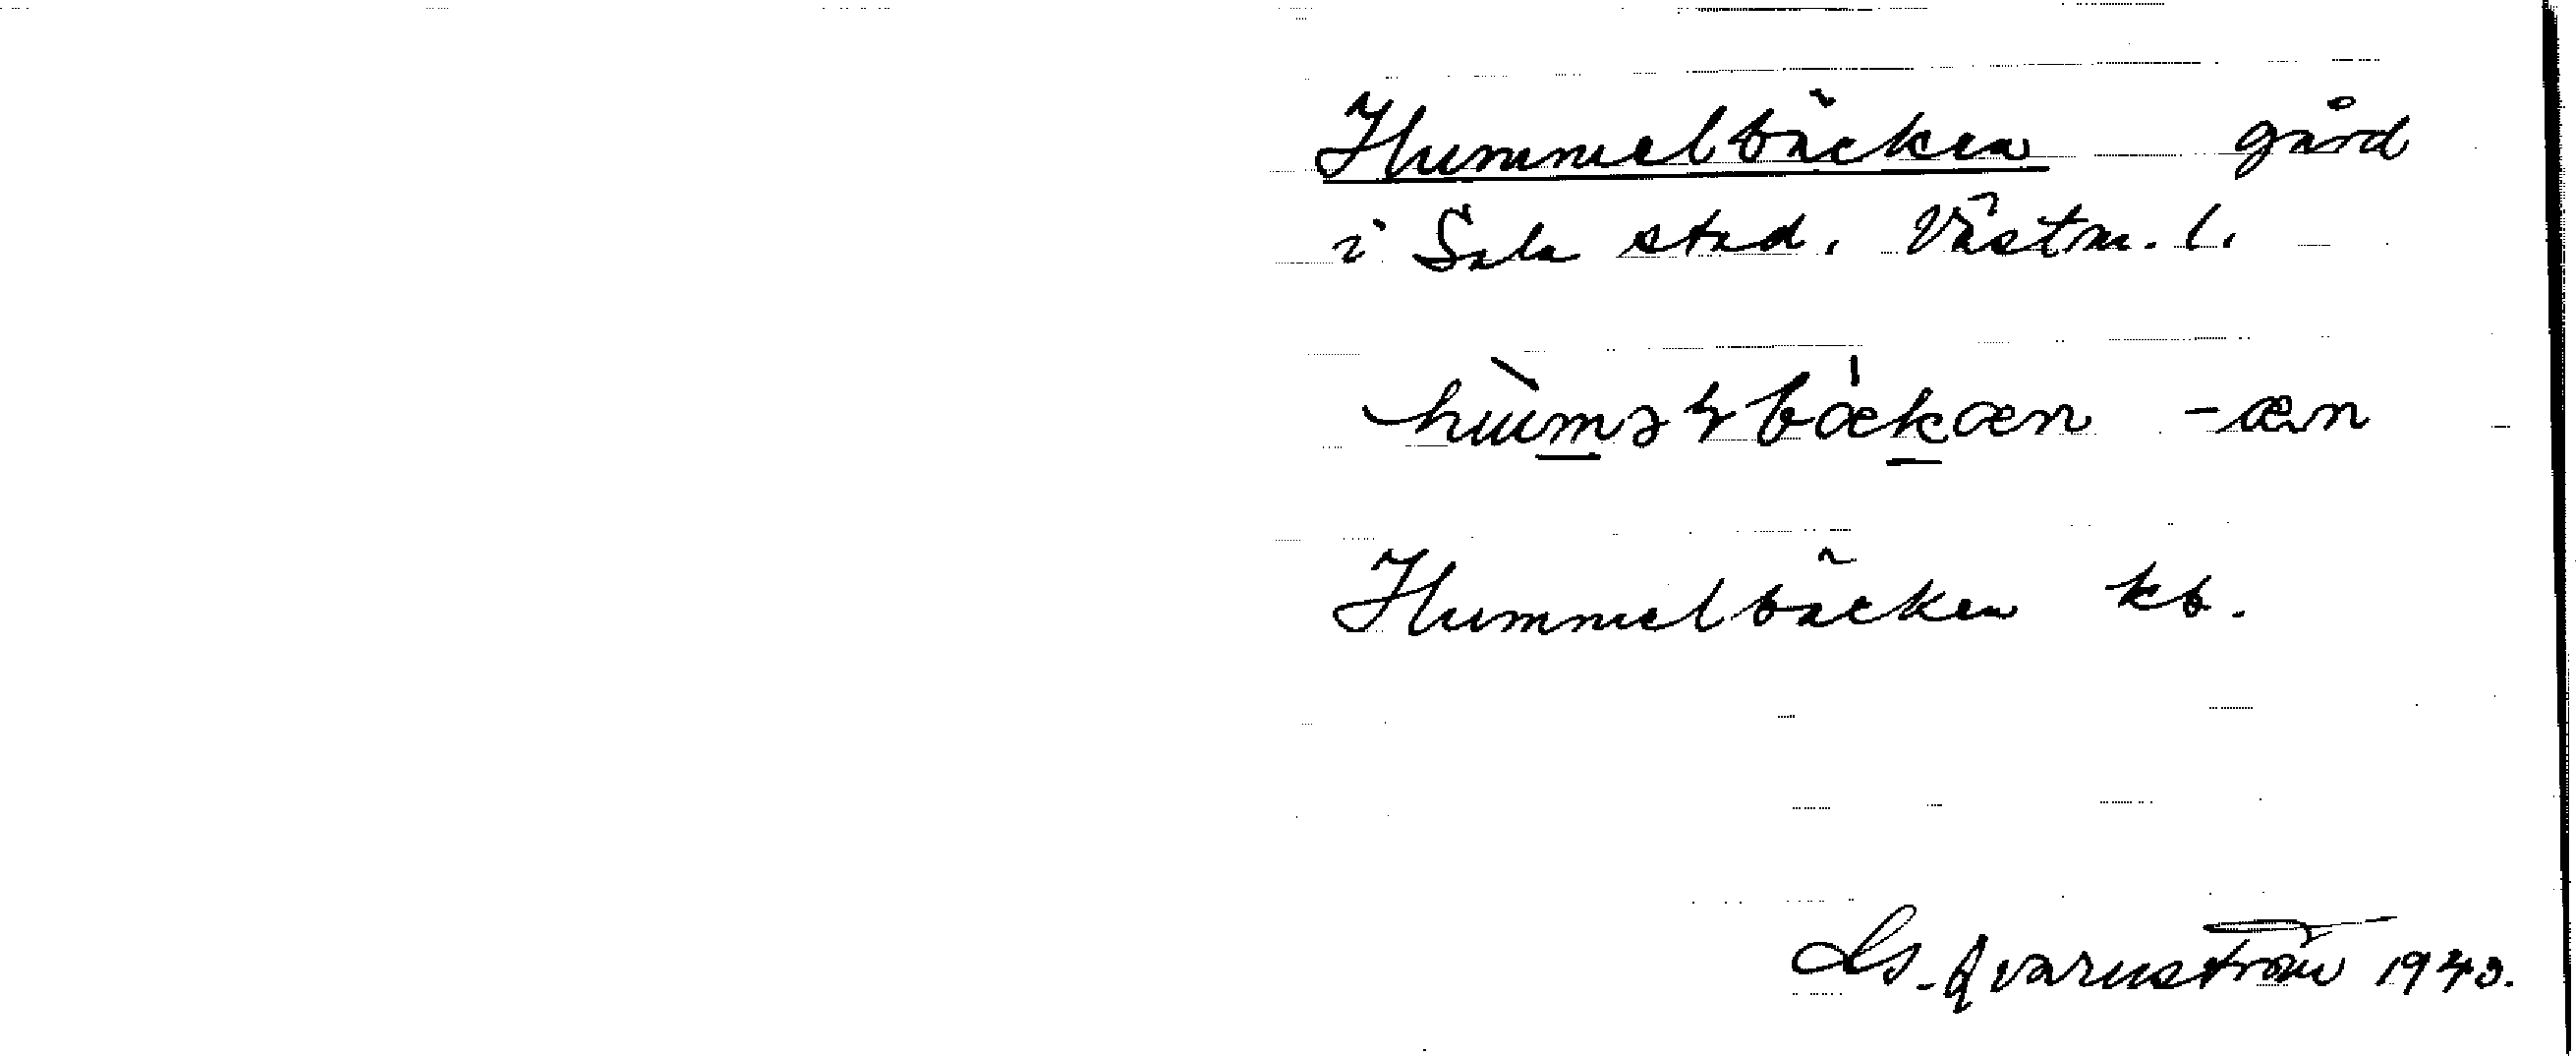 Hummelbäcken gård
i Sala stad. Västm. l.
hùməɭbækæn -æn
Hummelbäcken kb.
Ls. Qvarnström 1943.